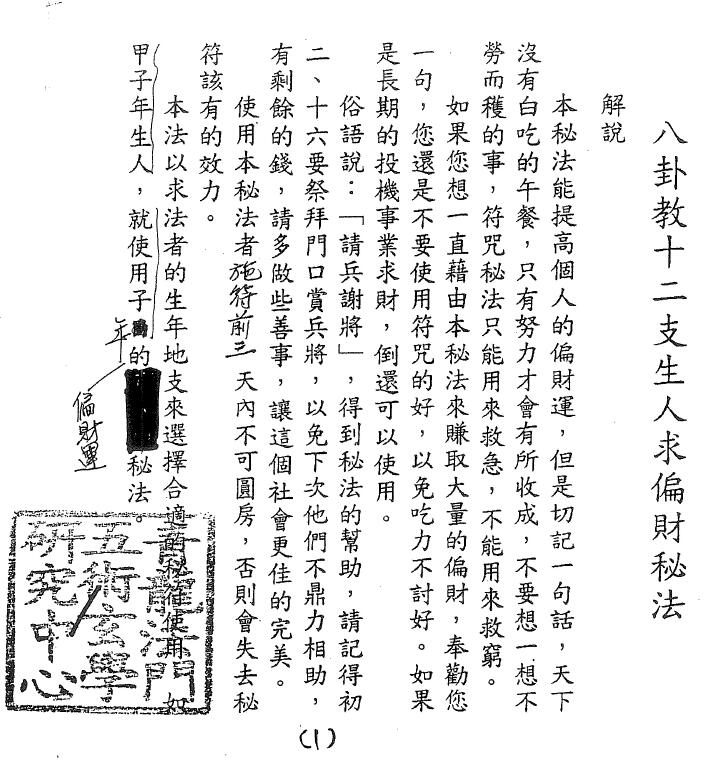 八卦教十二支生人求偏財秘法
解說
本秘法能提高個人的偏財運，但是切記一句話，天下
沒有白吃的午餐，只有努力才會有所收成，不要想一想不
勞而穫的事，符咒秘法只能用來救急，不能用來救窮。
如果您想一直藉由本秘法來賺取大量的偏財，奉勸您
一句，您還是不要使用符咒的好，以免吃力不討好。如果
是長期的投機事業求財，倒還可以使用。
俗語說：「請兵謝將」，得到秘法的幫助，請記得初
二、十六要祭拜門口賞兵將，以免下次他們不鼎力相助，
有剩餘的錢，請多做些善事，讓這個社會更佳的完美。
使用本秘法者施符前三天內不可圓房，否則會失去秘
符該有的效力。
本法以求法者的生年地支來選擇合適的秘符使用，如
甲子年生人，就使用子的秘法。
年
偏財運
龍法門
五術玄學
研究中心
(1)